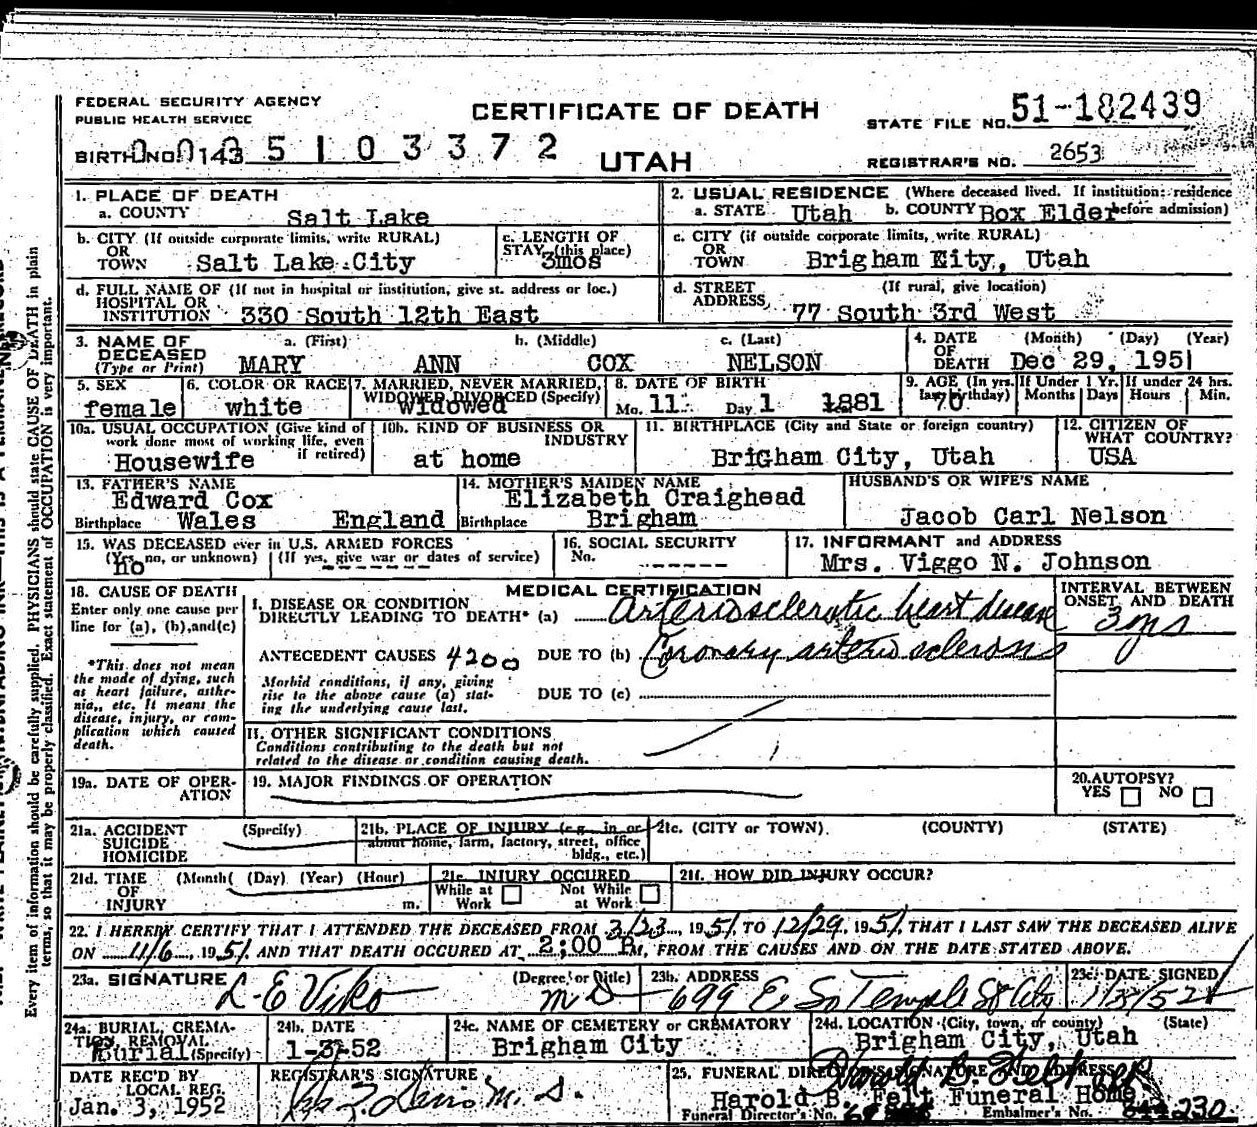 FEDERAL SECURITY AGENCY
PUBLIC HEALTH SERVICE
CERTIFICATE OF DEATH
STATE FILE NO. 51-182439
BIRTH NO. 0143 5 1 0 3 3 7 2
UTAH
REGISTRAR'S NO. 2653
1. PLACE OF DEATH
a. COUNTY Salt Lake
2. USUAL RESIDENCE (Where deceased lived. If institution: residence before admission)
a. STATE Utah b. COUNTY Box Elder
b. CITY (If outside corporate limits, write RURAL)
OR
TOWN Salt Lake City
c. LENGTH OF
STAY (this place)
3mos
c. CITY (if outside corporate limits, write RURAL)
OR
TOWN Brigham City, Utah
d. FULL NAME OF (If not in hospital or institution, give st. address or loc.)
HOSPITAL OR
INSTITUTION 330 South 12th East
d. STREET (If rural, give location)
ADDRESS 77 South 3rd West
3. NAME OF a. (First) b. (Middle) c. (Last)
DECEASED
(Type or Print) MARY ANN COX NELSON
4. DATE (Month) (Day) (Year)
OF
DEATH Dec 29, 1951
5. SEX
female
6. COLOR OR RACE
white
7. MARRIED, NEVER MARRIED,
WIDOWED DIVORCED (Specify)
Widowed
8. DATE OF BIRTH
Mo. 11 Day 1 1881
9. AGE (In yrs.
last birthday)
70
If Under 1 Yr.
Months Days
If under 24 hrs.
Hours Min.
10a. USUAL OCCUPATION (Give kind of
work done most of working life, even
if retired)
Housewife
10b. KIND OF BUSINESS OR
INDUSTRY
at home
11. BIRTHPLACE (City and State or foreign country)
BriGham City, Utah
12. CITIZEN OF
WHAT COUNTRY?
USA
13. FATHER'S NAME
Edward Cox
Birthplace Wales England
14. MOTHER'S MAIDEN NAME
Elizabeth Craighead
Birthplace Brigham
HUSBAND'S OR WIFE'S NAME
Jacob Carl Nelson
15. WAS DECEASED ever in U.S. ARMED FORCES
(Yes, no, or unknown) (If yes, give war or dates of service)
no -------
16. SOCIAL SECURITY
No. ------
17. INFORMANT and ADDRESS
Mrs. Viggo N. Johnson
18. CAUSE OF DEATH
Enter only one cause per
line for (a), (b), and (c)
*This does not mean
the mode of dying, such
as heart failure, asthe-
nia, etc. It means the
disease, injury, or com-
plication which caused
death.
MEDICAL CERTIFICATION
INTERVAL BETWEEN
ONSET AND DEATH
I. DISEASE OR CONDITION
DIRECTLY LEADING TO DEATH* (a) Arteriosclerotic heart disease 3 yrs
ANTECEDENT CAUSES 4200 DUE TO (b) Coronary arteriosclerosis
Morbid conditions, if any, giving
rise to the above cause (a) stat-
ing the underlying cause last.
DUE TO (c)
II. OTHER SIGNIFICANT CONDITIONS
Conditions contributing to the death but not
related to the disease or condition causing death.
19a. DATE OF OPER-
ATION
19. MAJOR FINDINGS OF OPERATION
20. AUTOPSY?
YES NO
21a. ACCIDENT (Specify)
SUICIDE
HOMICIDE
21b. PLACE OF INJURY (e.g., in or
about home, farm, factory, street, office
bldg., etc.)
21c. (CITY or TOWN) (COUNTY) (STATE)
21d. TIME (Month) (Day) (Year) (Hour)
OF
INJURY m.
21e. INJURY OCCURED
While at Work Not While at Work
21f. HOW DID INJURY OCCUR?
22. I HEREBY CERTIFY THAT I ATTENDED THE DECEASED FROM 3/23, 1951 TO 12/29, 1951, THAT I LAST SAW THE DECEASED ALIVE
ON 11/6, 1951 AND THAT DEATH OCCURED AT 2:00 P M, FROM THE CAUSES AND ON THE DATE STATED ABOVE.
23a. SIGNATURE (Degree or Title)
L E Viko M D
23b. ADDRESS
699 E So Temple St City
23c. DATE SIGNED
1/3/52
24a. BURIAL, CREMA-
TION, REMOVAL
Burial (Specify)
24b. DATE
1-3-52
24c. NAME OF CEMETERY or CREMATORY
Brigham City
24d. LOCATION (City, town, or county) (State)
Brigham City, Utah
DATE REC'D BY
LOCAL REG.
Jan. 3, 1952
REGISTRAR'S SIGNATURE
M. D.
25. FUNERAL DIRECTOR'S SIGNATURE AND ADDRESS
Harold B. Felt
Harold B. Felt Funeral Home
Funeral Director's No. Embalmer's No. 230
Every item of information should be carefully supplied. PHYSICIANS should state CAUSE OF DEATH in plain
terms, so that it may be properly classified. Exact statement of OCCUPATION is very important.